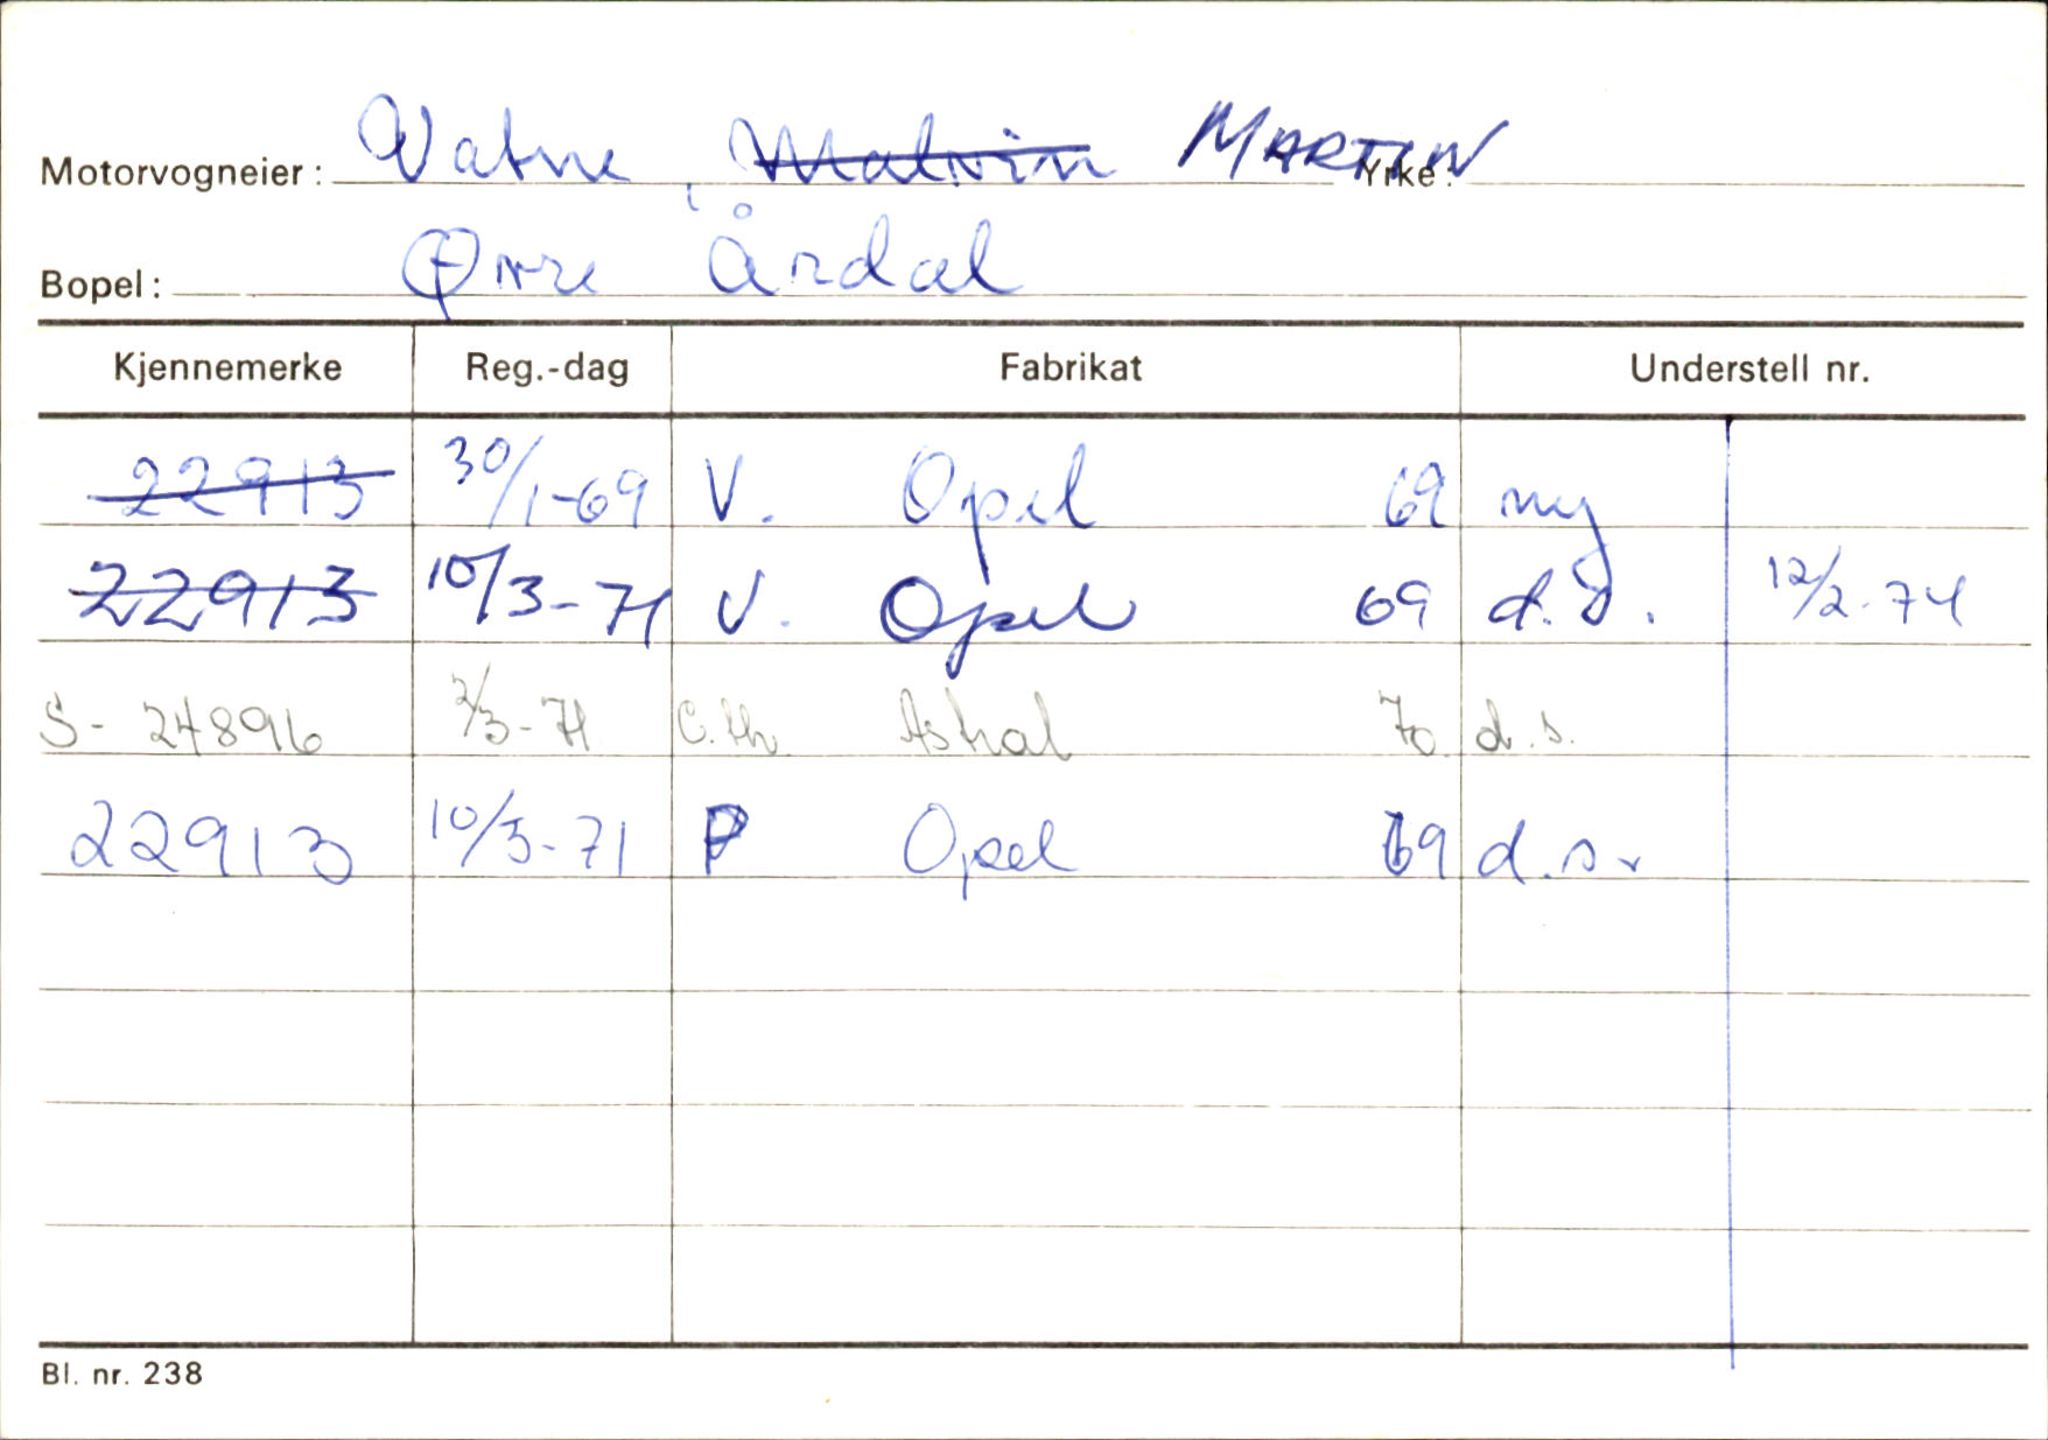 Motorvogneier: Vatne, Malvin MARTIN Yrke:
Bopel: Øvre Årdal
Kjennemerke Reg.-dag Fabrikat Understell nr.
22913 30/1-69 V. Opel 69 ny
22913 10/3-71 V. Opel 69 d.d. 12/2-74
S-24896 2/3-71 C.th. Astral 70 d.s.
22913 10/3-71 P Opel 69 d.s.
Bl. nr. 238